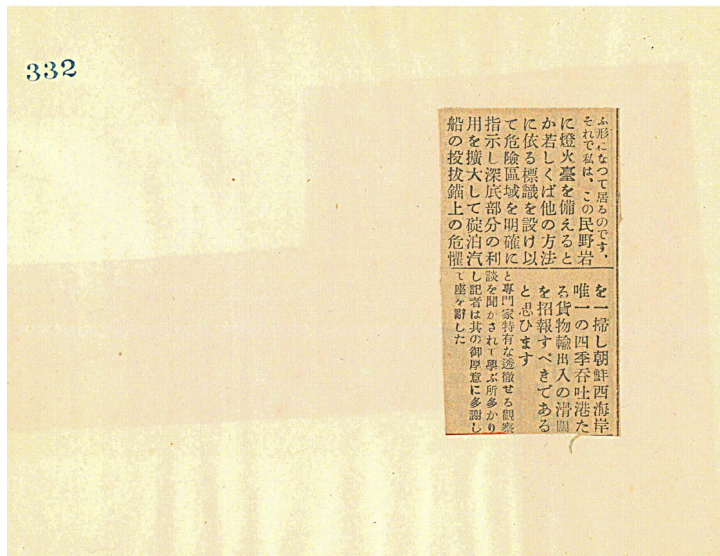 332
ふ形になつて居るのです、
それで私は、この民野岩
に燈火臺を備えると
か若しくば他の方法
に依る標識を設け以
て危險區域を明確に
指示し深底部分の利
用を擴大して碇泊汽
船の投拔錨上の危懼
を一掃し朝鮮西海岸
唯一の四季呑吐港た
る貨物輸出入の滑
を招報すべきである
と思ひます
と專門家特有な透徹せる觀察
談を聞かされて學ぶ所多かり
し記者は其の御厚意に多謝し
て座を辭した